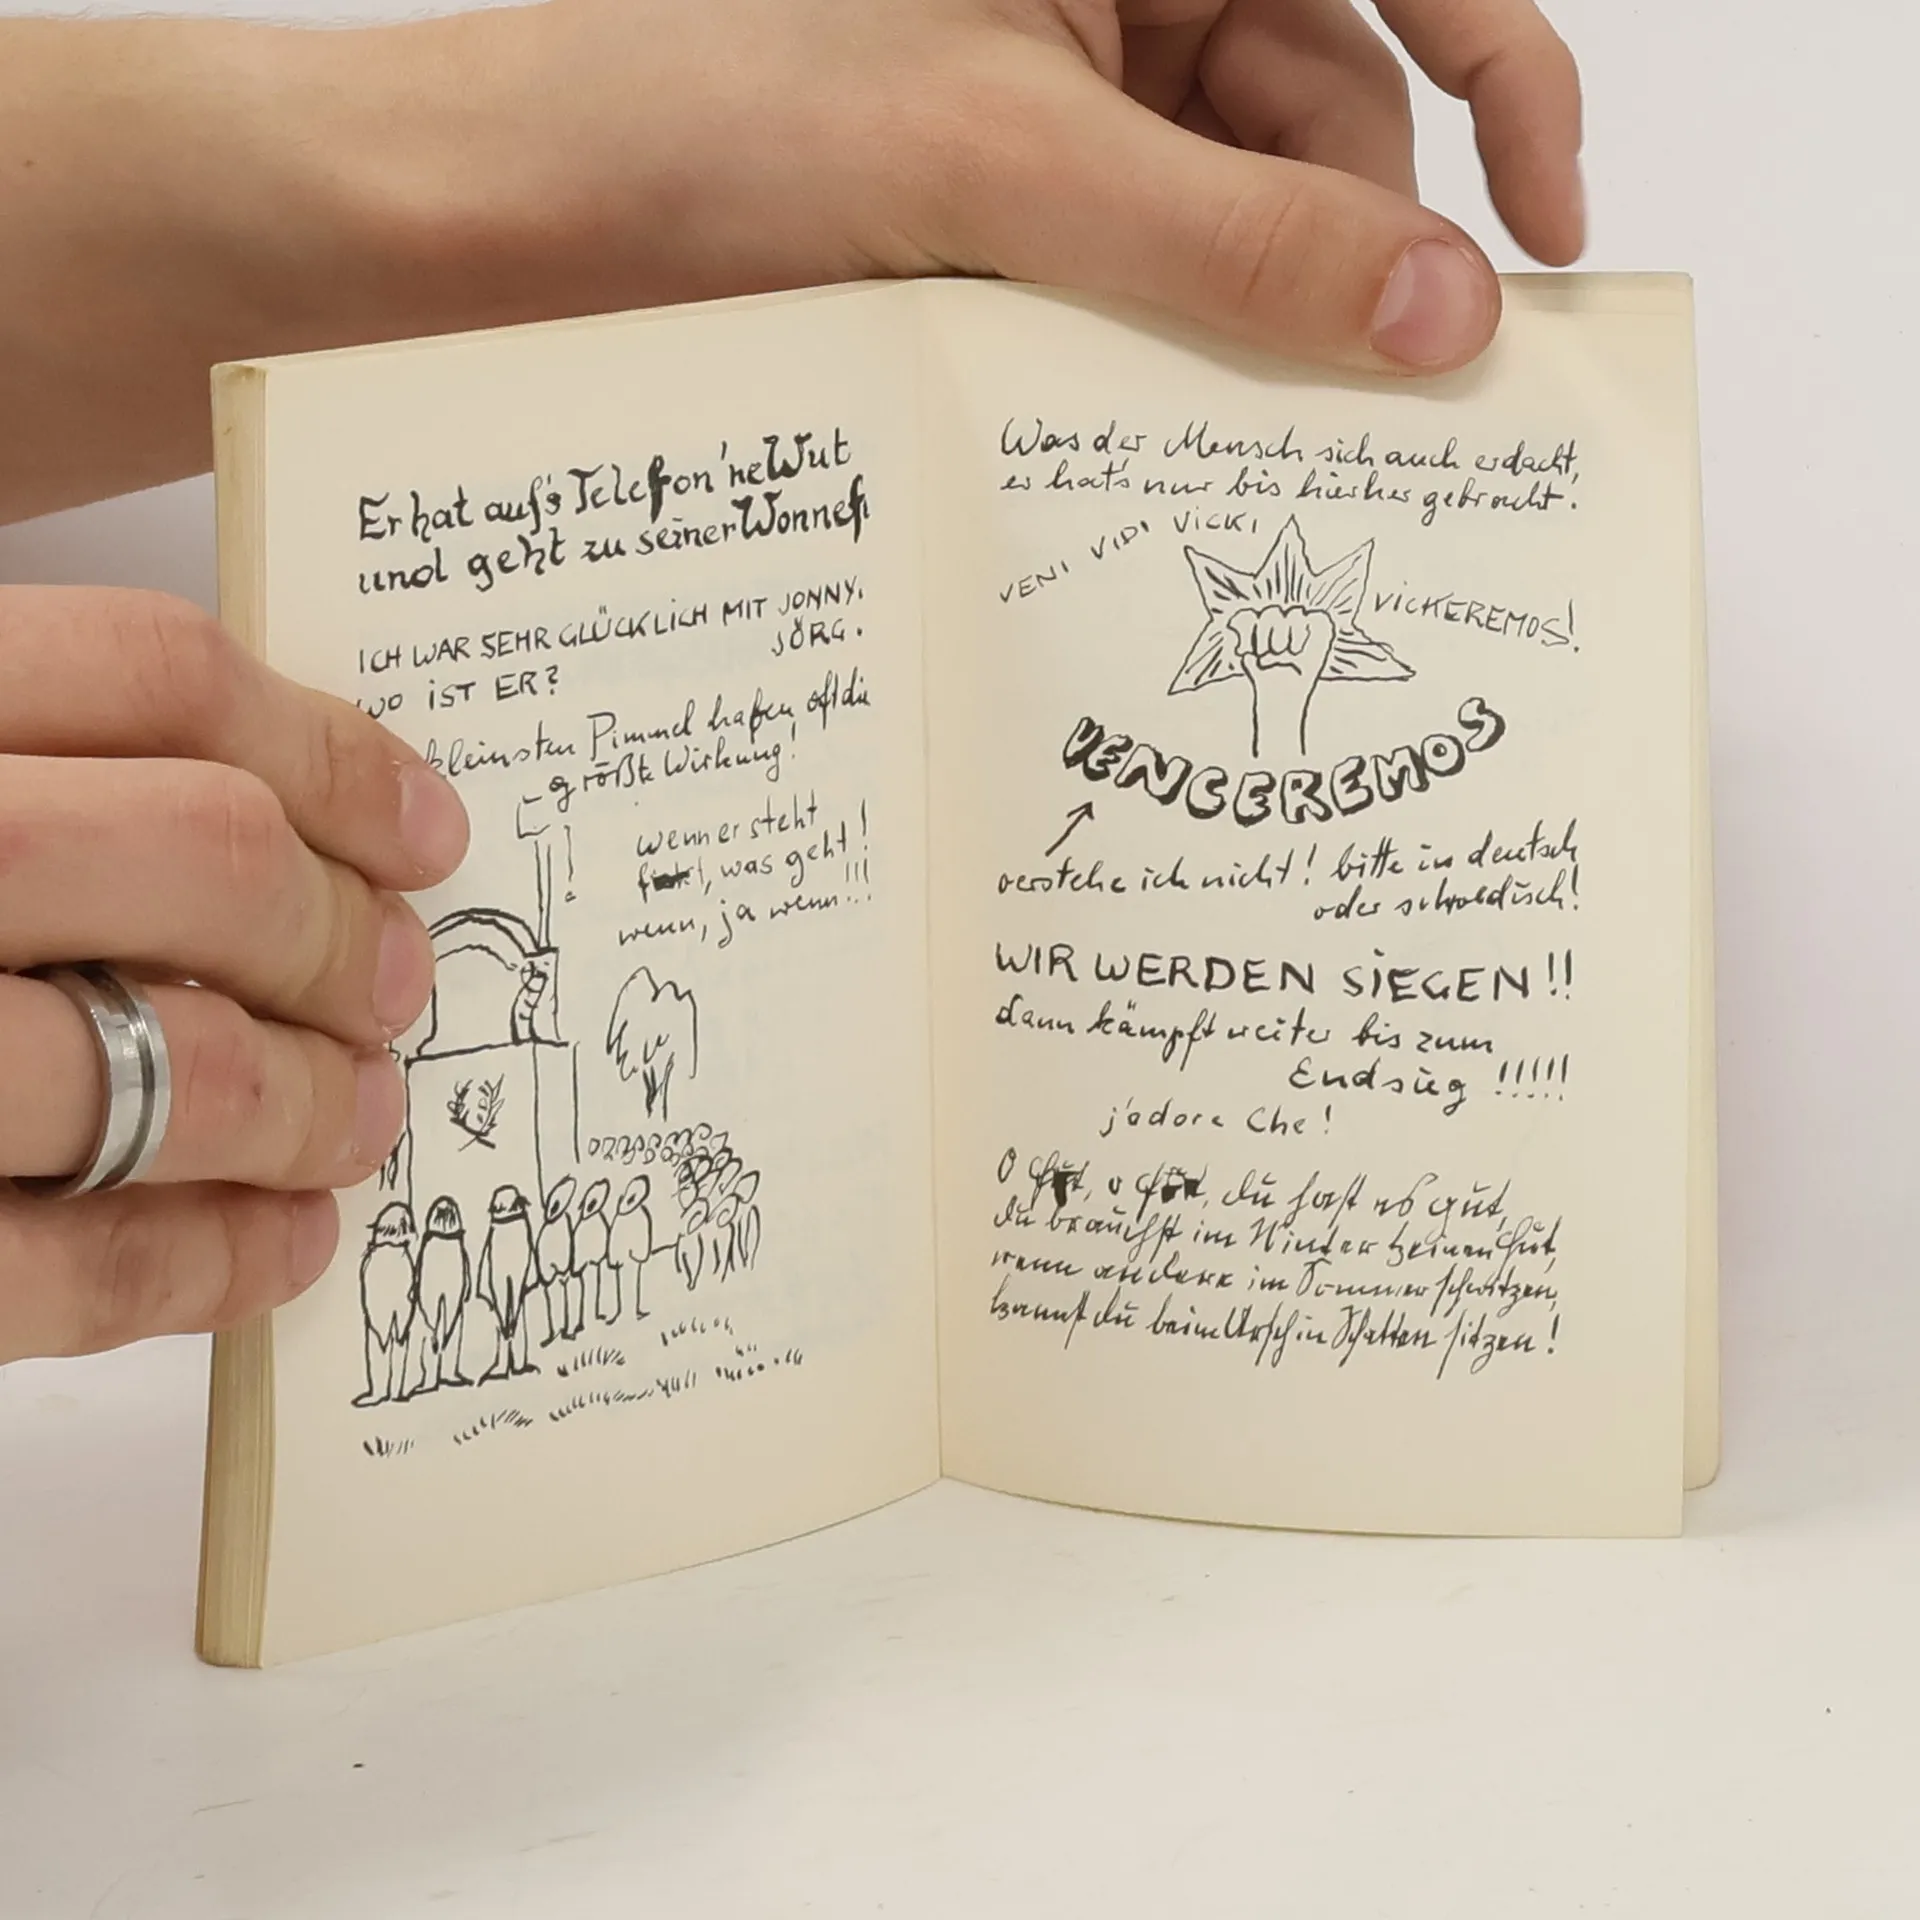 Er hat auf's Telefon 'ne Wut
und geht zu seiner Wonne
ICH WAR SEHR GLÜCKLICH MIT JONNY.
JÖRG.
WO IST ER?
kleinsten Pimmel haben oft die
größte Wirkung!
wenn er steht
was geht!
wenn, ja wenn!!!
Was der Mensch sich auch erdacht,
er hat's nur bis hierher gebracht.
VENI VIDI VICKI
VICKEREMOS!
VENCEREMOS
verstehe ich nicht! bitte in deutsch
oder schwedisch!
WIR WERDEN SIEGEN!!
dann kämpft weiter bis zum
Endsieg !!!!!
j'adore Che!
O, o, du hast es gut,
du brauchst im Winter keinen Hut,
wenn andere im Sommer schwitzen,
kannst du beim Arsch in Schatten sitzen!